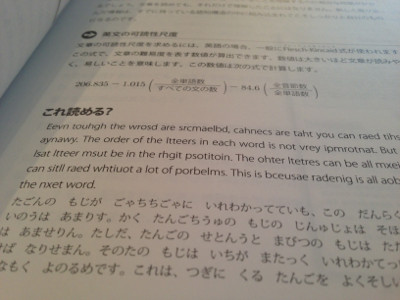 英文の可読性尺度
文章の可読性尺度を求めるには、英語の場合、一般にFlesch Kincaid式が使われます
この式で、文章の難易度を表す数値が算出できます。数値は大きいほど文章が読みや
く、易しいことを意味します。この数値は次の式で計算します。
206.835 − 1.015 (全単語数 / すべての文の数) − 84.6 (全音節数 / 全単語数)
これ読める?
Eevn touhgh the wrosd are srcmaelbd, cahnecs are taht you can raed tihs
aynawy. The order of the ltteers in each word is not vrey ipmrotnat. But
lsat ltteer msut be in the rhgit psotitoin. The ohter letetres can be all mxei
can sitll raed whtiuot a lot of porbelms. This is bceusae radenig is all aob
the nxet word.
たごんの もじが ごゃちちごゃに いれわかってていも、この だんらく
いのうは あまりす。かく たんごちうゅの もじの じんゅじょは そほ
は あませりん。たしだ、たんごの せとんうと まびつの もじは ただ
ば なりせまん。そのたの もじは いちが またっく いれわかてっ
なもく よのるめです。これは、つぎに くる たんごを よくそしい